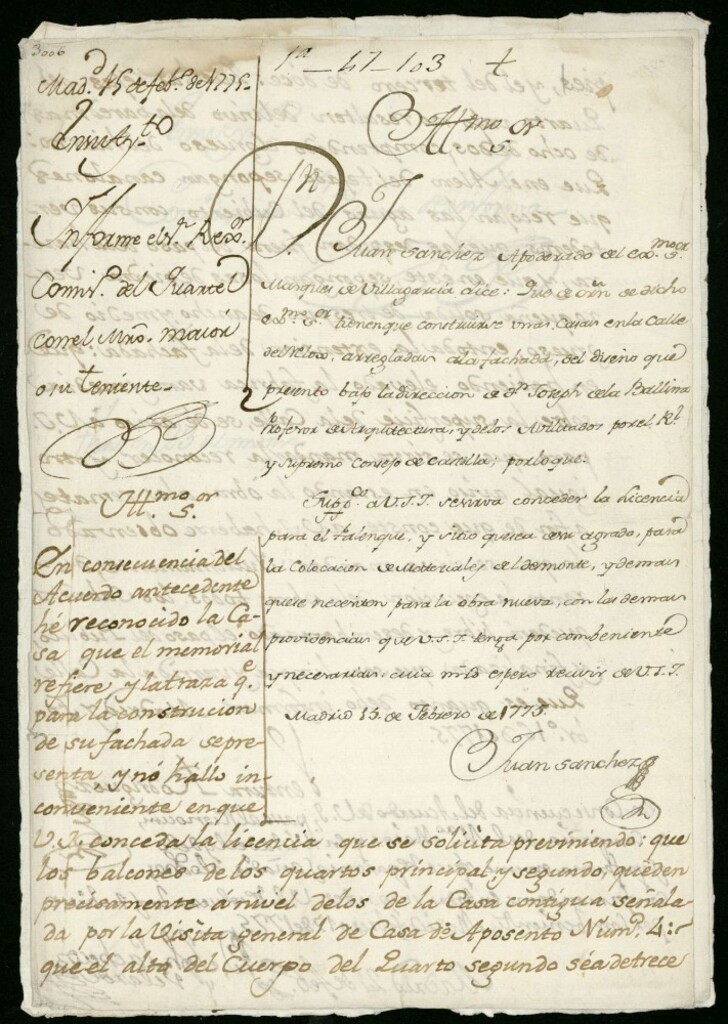 3006
1ª_47_103 +
Mad.d 15 de feb.o de 1775.
En su Ay.to
Informe el S.r Rex.or
Comis.o del Quartel
con el Mro. maior
o su teniente.
Ill.mo S.or
En consecuencia del
Acuerdo antecedente
hé reconocido la Ca-
sa que el memorial
refiere y la traza q.e
para la construcion
de su fachada se pre-
senta y nó hallo in-
conveniente en que
Ill.mo S.or
Juan Sanchez Apoderado del Exc.mo S.or
Marques de Villagarcia dice: Que de orn. de dicho
Ex.mo S.or tiene que construirse unas Casas en la Calle
del Relox, arregladas ala fachada, del diseño que
presento bajo la direccion de d.n Joseph de la Ballina
Profesor de Arquitectura, y de los Avilitados por el R.l
y Supremo Consejo de Castilla; por lo que:
Supp.co a V.S.I. se sirva conceder la Licencia
para el Palenque, y sitio que sea de su agrado, para
la Colocacion de Materiales del desmonte, y demas
que se necesiten para la obra nueva, con las demas
providencias que V.S.I. tenga por combeniente
y necesarias, cuia mrd espero recivir de V.S.I.
Madrid 15 de Febrero de 1775.
Juan Sanchez
V.S. conceda la licencia que se solicita previniendo: que
los balcones de los quartos principal y segundo, queden
precisamente á nivel delos de la Casa contigua señala-
da por la Visita general de Casa de Aposento Num.o 4:
que el alto del Cuerpo del Quarto segundo séa de trece